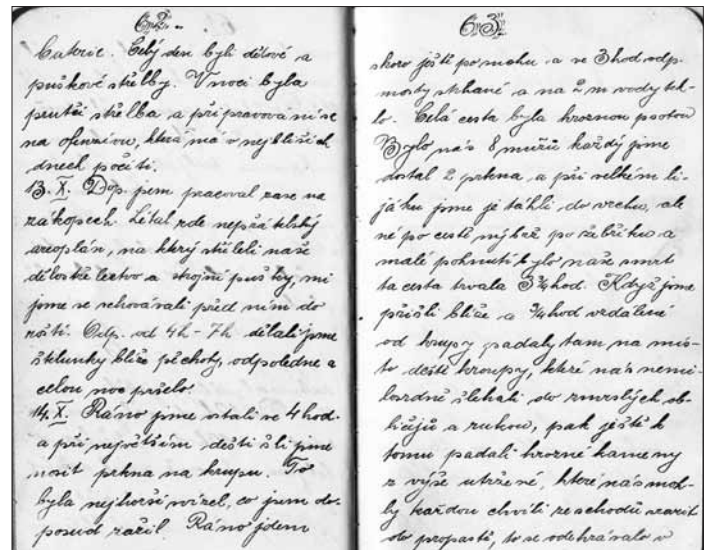 62.
baterie. Celý den byli dělové a
puškové střelby. V noci byla
prutší střelba a připravování se
na ofenzivu, která má v nejbližších
dnech počíti.
13. X. Dop. jsem pracoval zase na
zákopech. Lítal zde nepřátelský
aeroplán, na který stříleli naše
dělostřelectvo a strojní pušky, mi
jsme se schovávali před ním do
roští. Odp. od 4h - 7h dělali jsme
šklunky blíže pěchoty, odpoledne a
celou noc pršelo.
14. X. Ráno jsme vstali ve 4 hod.
a při největším dešti šli jsme
nosit prkna na krupu. To
byla nejhorší mizel, co jsem do-
posud zažil. Ráno jdem
63.
skoro ještě po mahu a ve 3 hod odp.
mosty strhané a na 2 m vody tek-
lo. Celá cesta byla hroznou psotou
Bylo nás 8 mužů každý jsme
dostal 2 prkna a při velkém li-
jáku jsme je táhli do vrchu, ale
né po cestě nýbrž po žebříku a
malé pohnutí bylo naše smrt
ta cesta trvala 3 3/4 hod. Když jsme
přišli blíže a 3/4 hod vzdálené
od krupy padaly tam na mís-
to deště kroupy, které nás nemi-
losrdně šlehali do zmrzlých ob-
ličejů a rukou, pak ještě k
tomu padali hrozné kameny
z výše utržené, které nás moh-
ly každou chvíli ze schodů srazit
do propasti, to se odehrávalo v